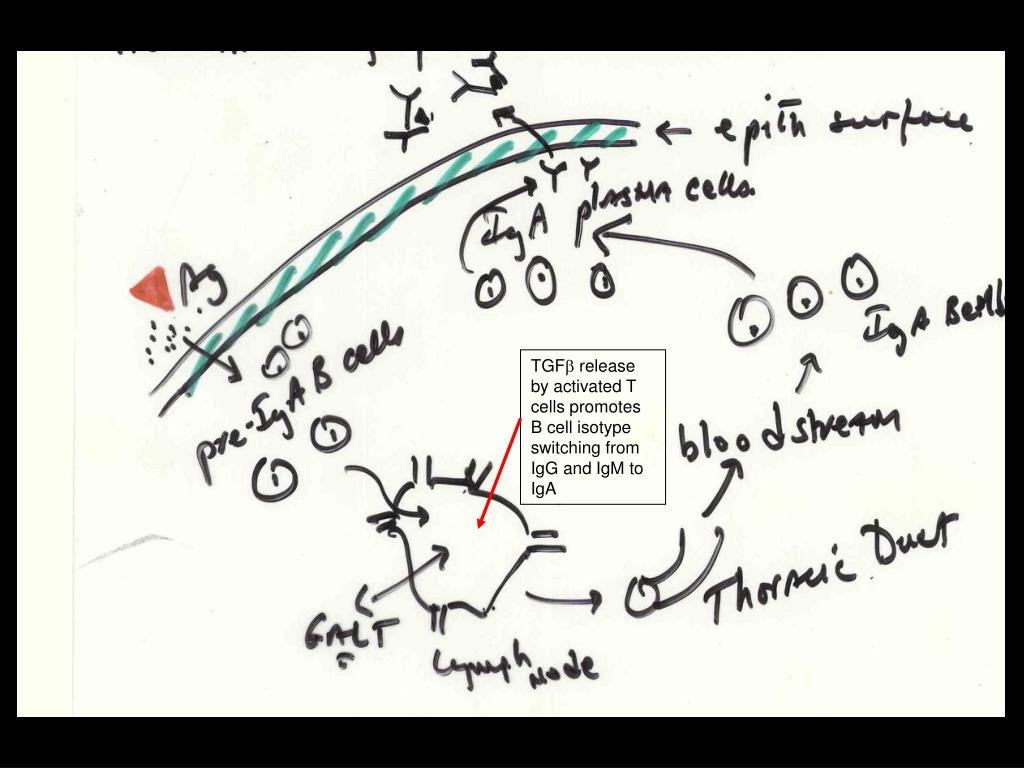 ← epith surface
plasma cells
IgA
Ag
IgA B cells
pre-IgA B cells
TGFβ release
by activated T
cells promotes
B cell isotype
switching from
IgG and IgM to
IgA
blood stream
Thoracic Duct
GALT
Lymph
Node